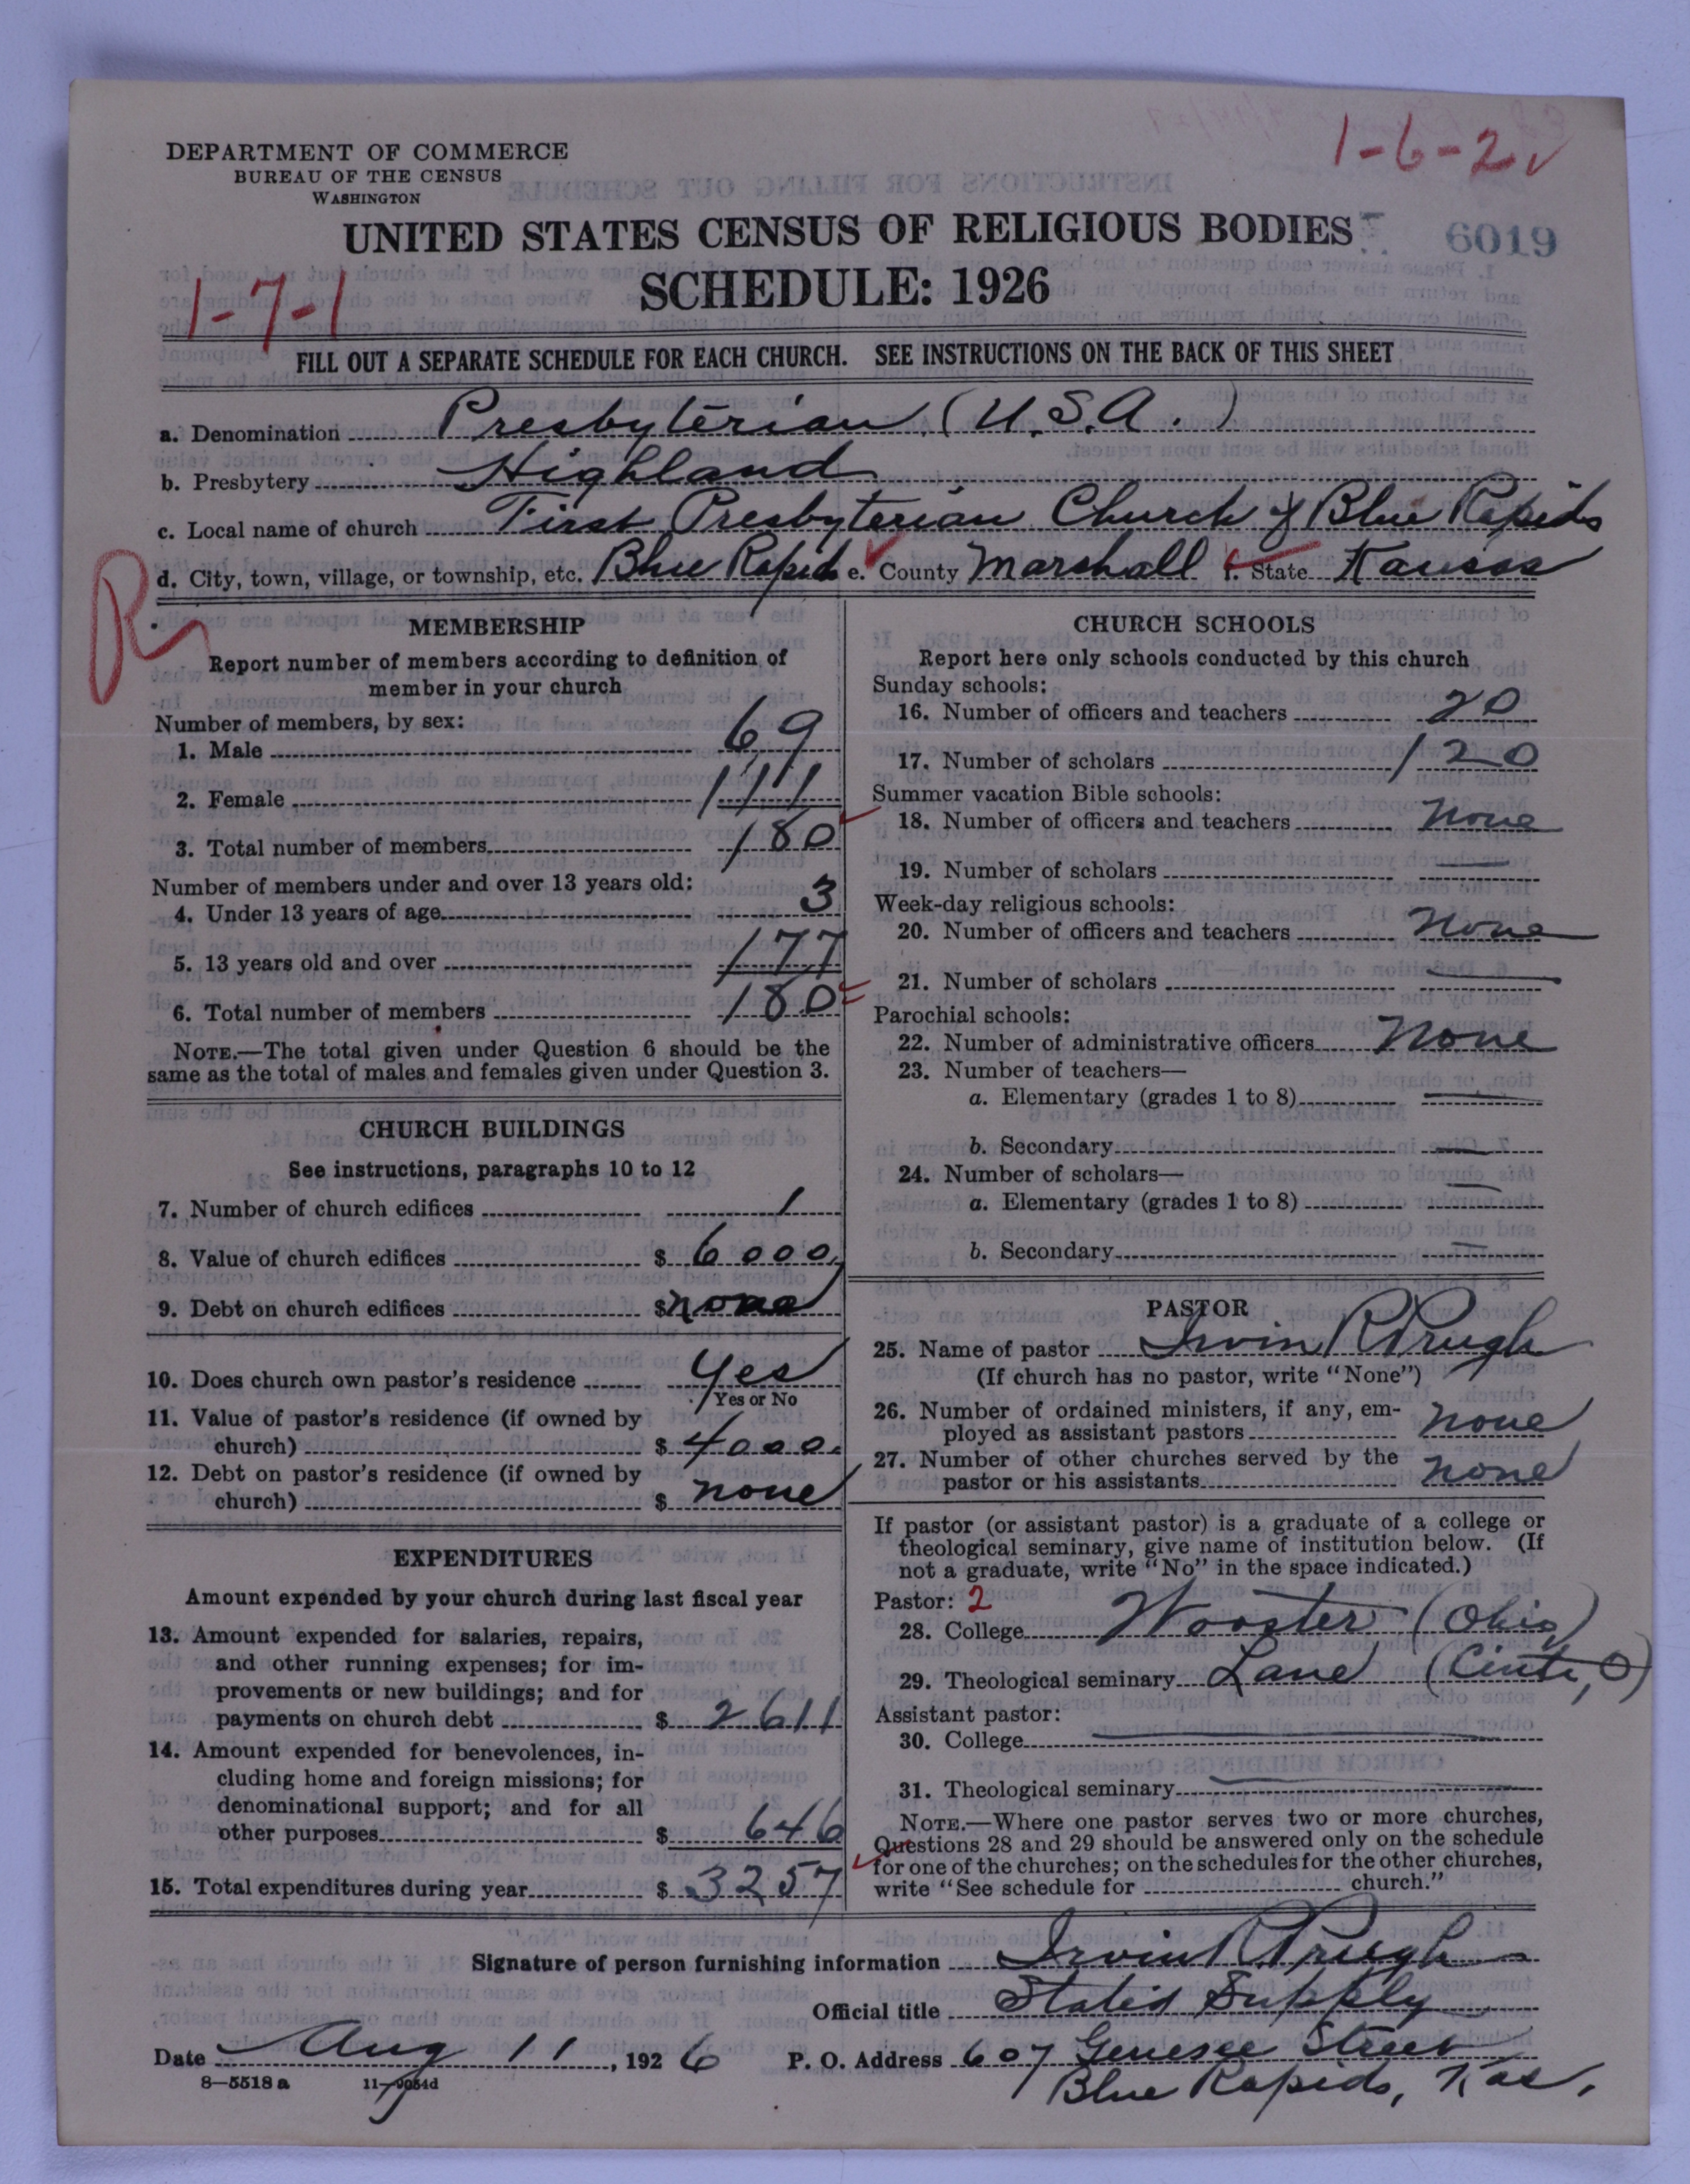 1-6-2
DEPARTMENT OF COMMERCE
BUREAU OF THE CENSUS
WASHINGTON
UNITED STATES CENSUS OF RELIGIOUS BODIES
6019
SCHEDULE: 1926
1-7-1
FILL OUT A SEPARATE SCHEDULE FOR EACH CHURCH. SEE INSTRUCTIONS ON THE BACK OF THIS SHEET
a. Denomination Presbyterian (U.S.A.)
b. Presbytery Highland
c. Local name of church First Presbyterian Church of Blue Rapids
d. City, town, village, or township, etc. Blue Rapids e. County Marshall f. State Kansas
R
MEMBERSHIP
Report number of members according to definition of
member in your church
Number of members, by sex:
1. Male 69
2. Female 111
3. Total number of members 180
Number of members under and over 13 years old:
4. Under 13 years of age 3
5. 13 years old and over 177
6. Total number of members 180
NOTE.—The total given under Question 6 should be the
same as the total of males and females given under Question 3.
CHURCH BUILDINGS
See instructions, paragraphs 10 to 12
7. Number of church edifices 1
8. Value of church edifices $ 6000
9. Debt on church edifices $ none
10. Does church own pastor's residence Yes
Yes or No
11. Value of pastor's residence (if owned by
church) $ 4000.
12. Debt on pastor's residence (if owned by
church) $ none
EXPENDITURES
Amount expended by your church during last fiscal year
13. Amount expended for salaries, repairs,
and other running expenses; for im-
provements or new buildings; and for
payments on church debt $ 2611
14. Amount expended for benevolences, in-
cluding home and foreign missions; for
denominational support; and for all
other purposes $ 646
15. Total expenditures during year $ 3257
CHURCH SCHOOLS
Report here only schools conducted by this church
Sunday schools:
16. Number of officers and teachers 20
17. Number of scholars 120
Summer vacation Bible schools:
18. Number of officers and teachers None
19. Number of scholars —
Week-day religious schools:
20. Number of officers and teachers None
21. Number of scholars —
Parochial schools:
22. Number of administrative officers None
23. Number of teachers—
a. Elementary (grades 1 to 8) —
b. Secondary —
24. Number of scholars—
a. Elementary (grades 1 to 8) —
b. Secondary —
PASTOR
25. Name of pastor Irvin R Prugh
(If church has no pastor, write "None")
26. Number of ordained ministers, if any, em-
ployed as assistant pastors none
27. Number of other churches served by the
pastor or his assistants none
If pastor (or assistant pastor) is a graduate of a college or
theological seminary, give name of institution below. (If
not a graduate, write "No" in the space indicated.)
Pastor: 2
28. College Wooster (Ohio)
29. Theological seminary Lane (Cinti, O)
Assistant pastor:
30. College —
31. Theological seminary —
NOTE.—Where one pastor serves two or more churches,
Questions 28 and 29 should be answered only on the schedule
for one of the churches; on the schedules for the other churches,
write "See schedule for church."
Signature of person furnishing information Irvin R Prugh
Official title Stated Supply
Date Aug 11, 1926 P. O. Address 607 Genesee Street
Blue Rapids, Kas.
8—5518 a 11—9054d